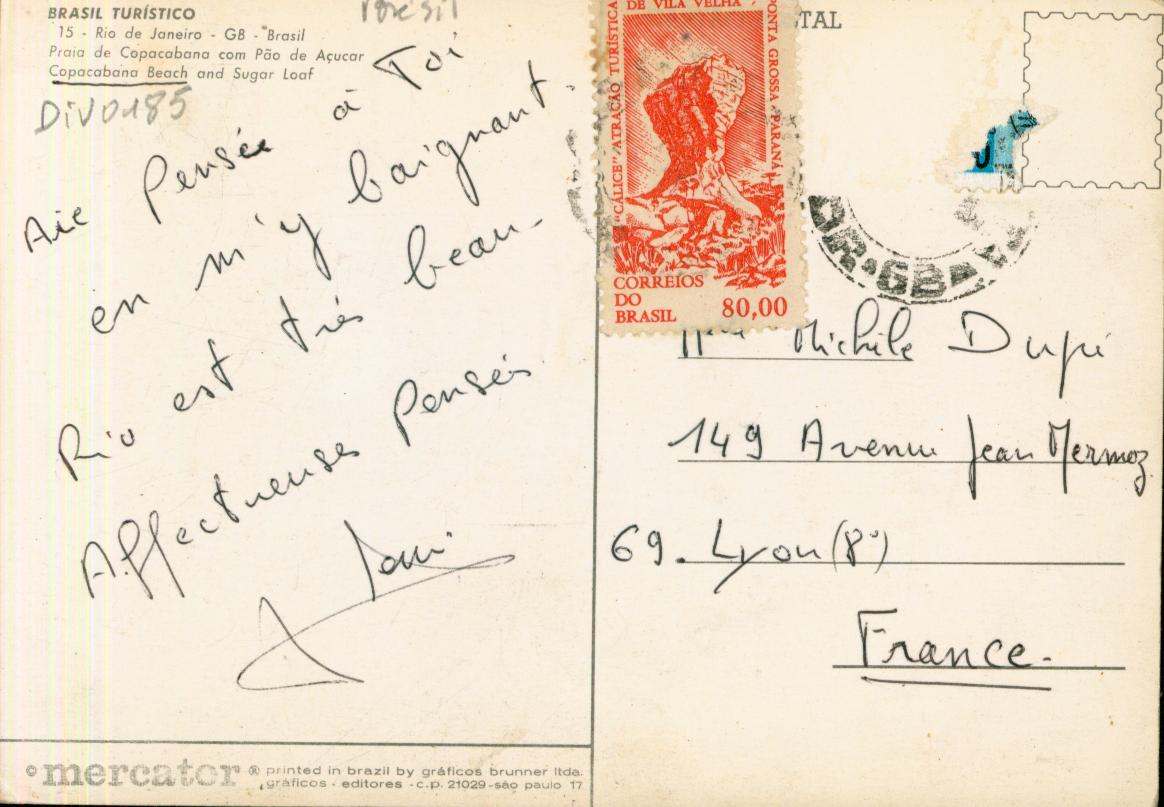 BRASIL TURÍSTICO
15 - Rio de Janeiro - GB - Brasil
Praia de Copacabana com Pão de Açucar
Copacabana Beach and Sugar Loaf
Brésil
DIV0185
Aie Pensée à Toi
en m'y baignant.
Rio est très beau.
Affectueuses Pensés
DE VILA VELHA
"CÁLICE" ATRAÇÃO TURÍSTICA
PONTA GROSSA PARANÁ
CORREIOS
DO
BRASIL
80,00
TAL
GB
Michèle Dupi
149 Avenue Jean Mermoz
69. Lyon (8°)
France.
© mercator ® printed in brazil by gráficos brunner ltda.
gráficos - editores - c.p. 21029-são paulo 17